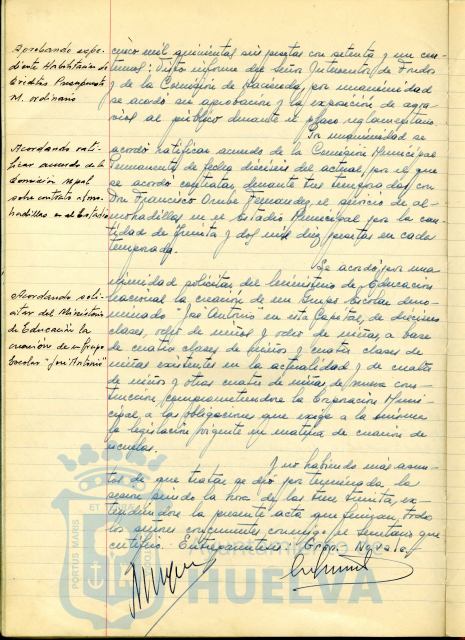 Aprobando expe-
diente Habilitación de
Créditos Presupuesto
M. ordinario
cinco mil quinientas seis pesetas con setenta y un cen-
timos: Visto informe del Señor Interventor de Fondos
y de la Comisión de Hacienda, por unanimidad
se acordó su aprobación y la exposición de agra-
vios al público durante el plazo reglamentario.
Por unanimidad se
Acordando rati-
ficar acuerdo de la
Comisión mpal
sobre contrato almo-
hadillas en el Estadio
acordó ratificar acuerdo de la Comisión Municipal
Permanente de fecha dieciseis del actual, por el que
se acordó contratar, durante tres temporadas, con
Don Francisco Fernandez, el servicio de al-
mohadillas en el Estadio Municipal por la can-
tidad de treinta y dos mil diez pesetas en cada
temporada.
Se acordó por una
Acordando soli-
citar del Ministerio
de Educación la
creación de un Grupo
Escolar "José Antonio"
nimidad solicitar del Ministerio de Educación
Nacional la creación de un Grupo Escolar deno-
minado "José Antonio" en esta Capital, de dieciseis
clases, ocho de niños y ocho de niñas, a base
de cuatro clases de niños y cuatro clases de
niñas existentes en la actualidad y de cuatro
de niños y otras cuatro de niñas de nueva cons-
trucción, comprometiendose la Corporación Muni-
cipal, a las obligaciones que exige a la misma
la legislación vigente en materia de creación de
escuelas.
Y no habiendo más asun-
tos de que tratar se dió por terminada la
sesión siendo la hora de las trece treinta, ex-
tendiendose la presente acta que firman todos
los señores concurrentes conmigo el Secretario que
certifico.
PORTUS MARIS ET
HUELVA